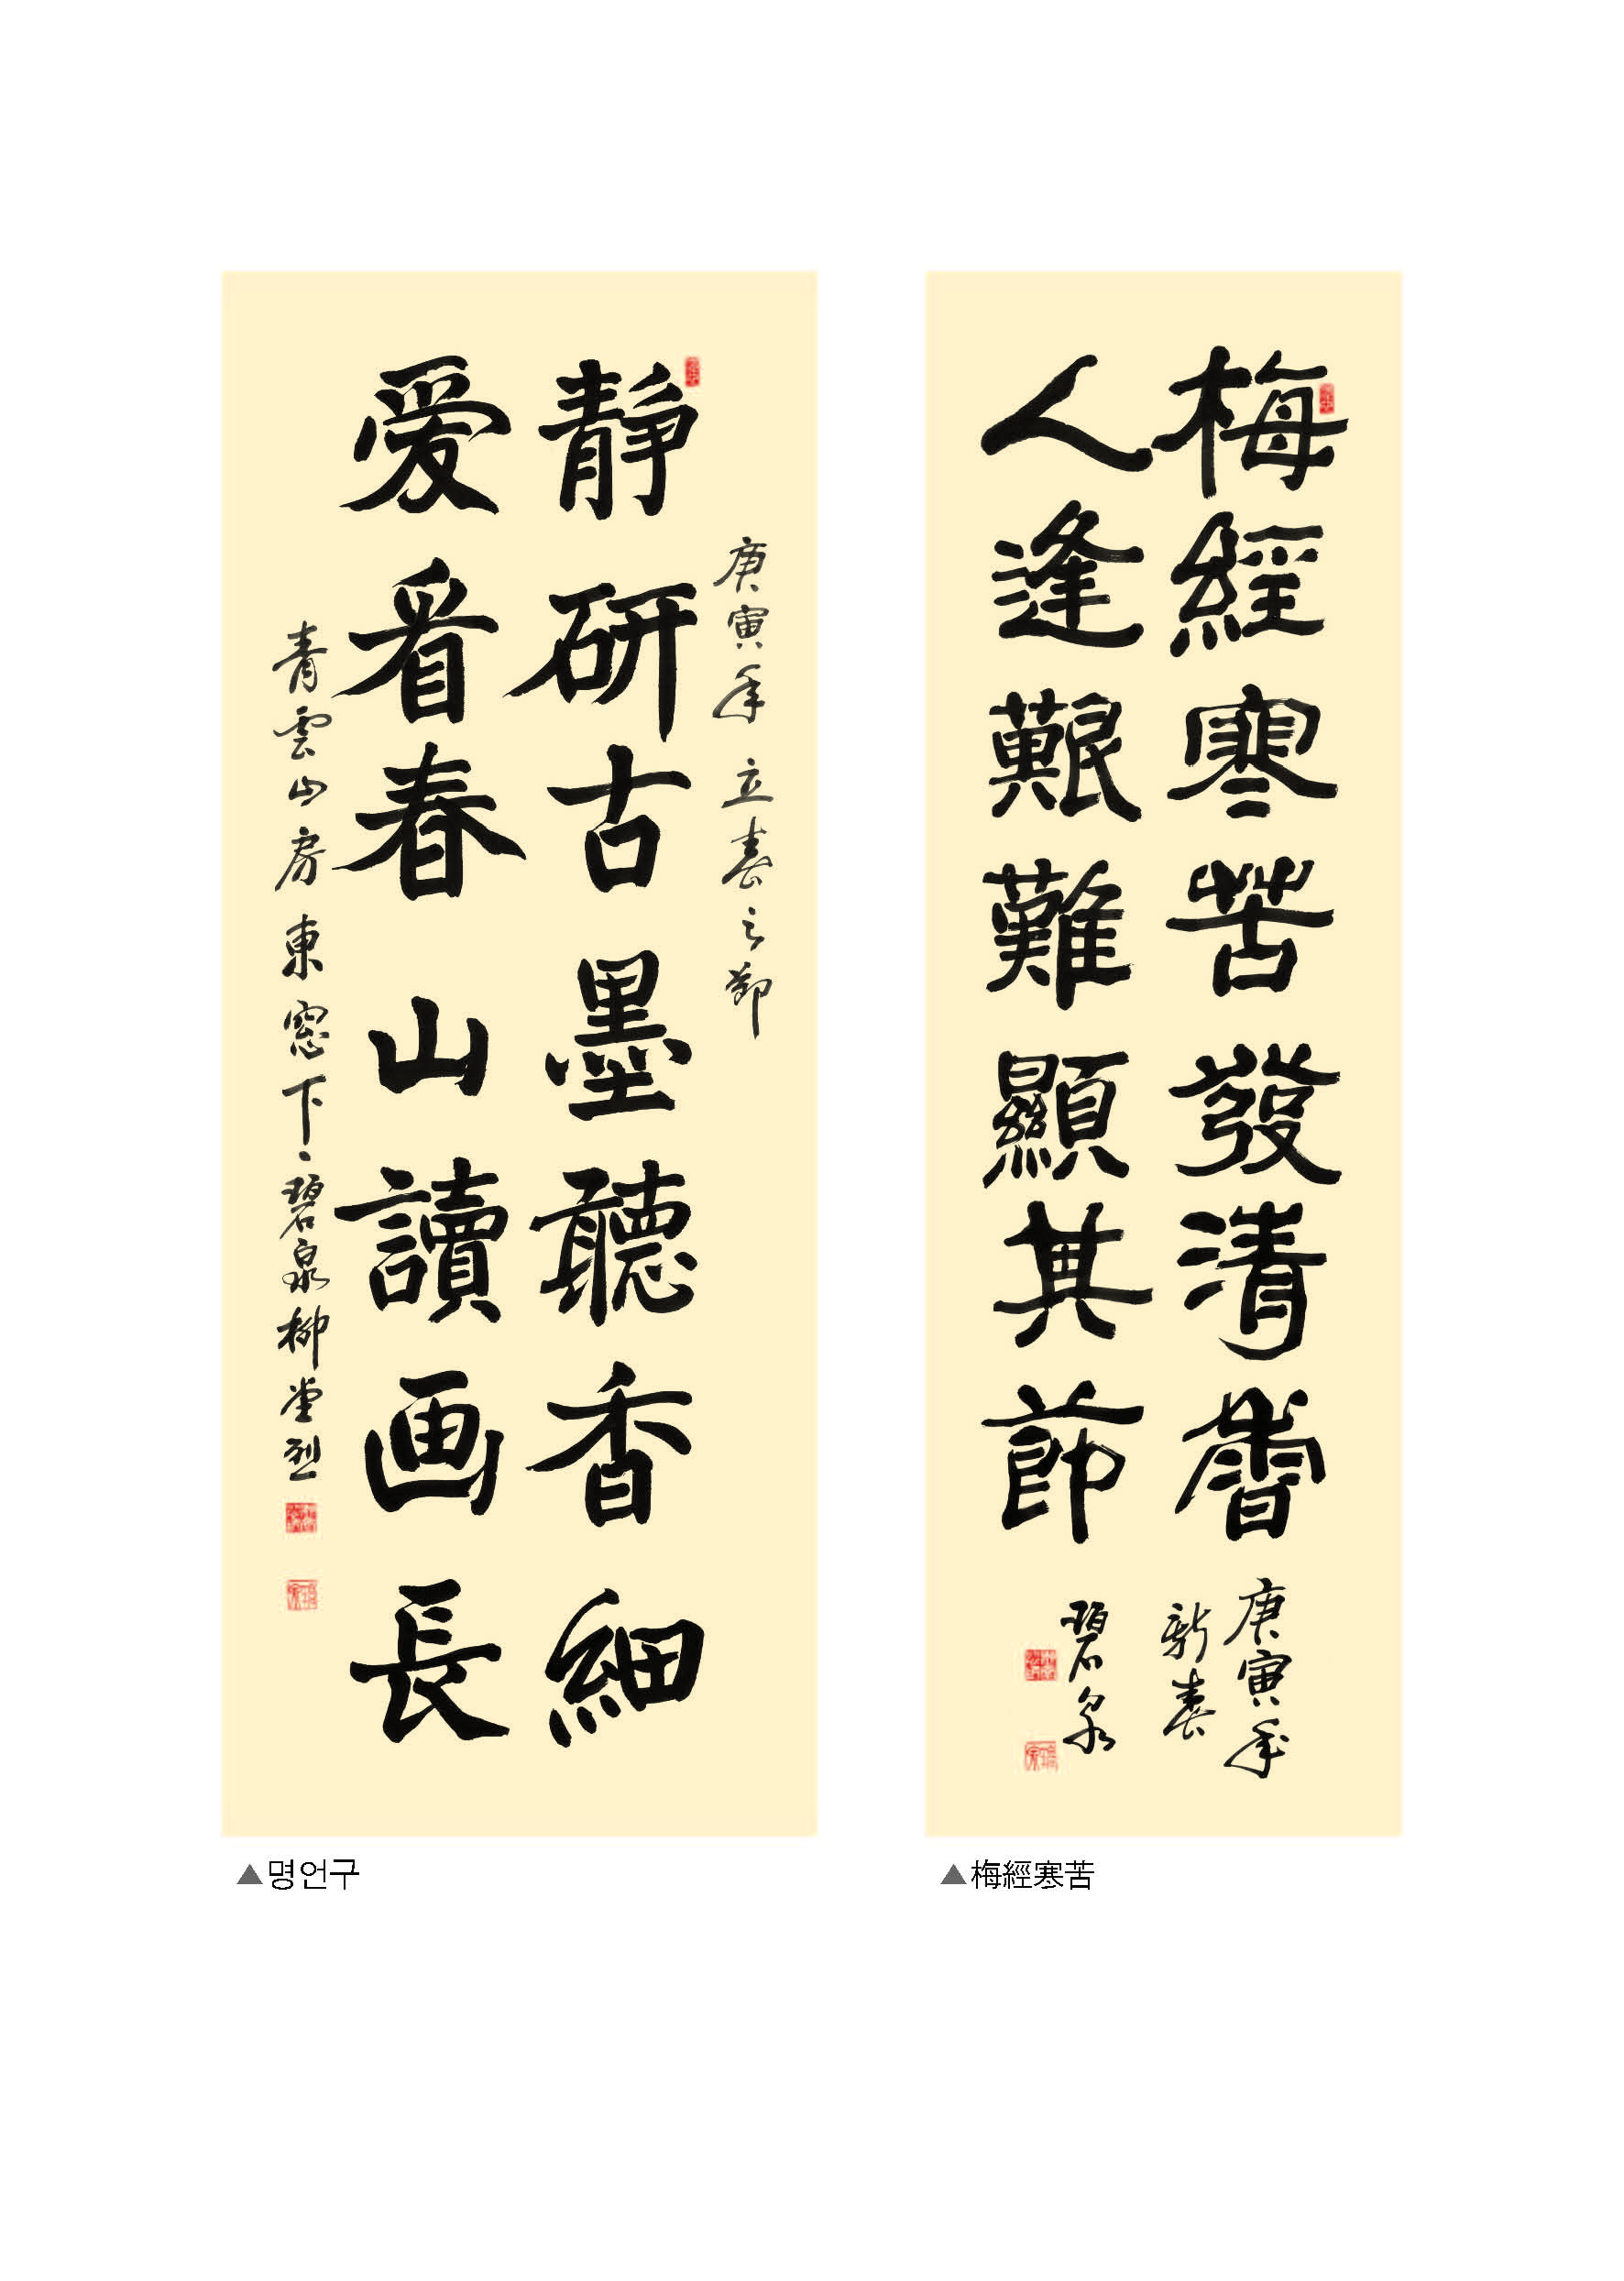 梅經寒苦發清香
人逢艱難顯其節
庚寅年
新春
碧泉
庚寅年 立春之節
靜研古墨聽香細
爱看春山讀画長
青雲山房東窓下 碧泉柳堂烈
▲명언구
▲梅經寒苦